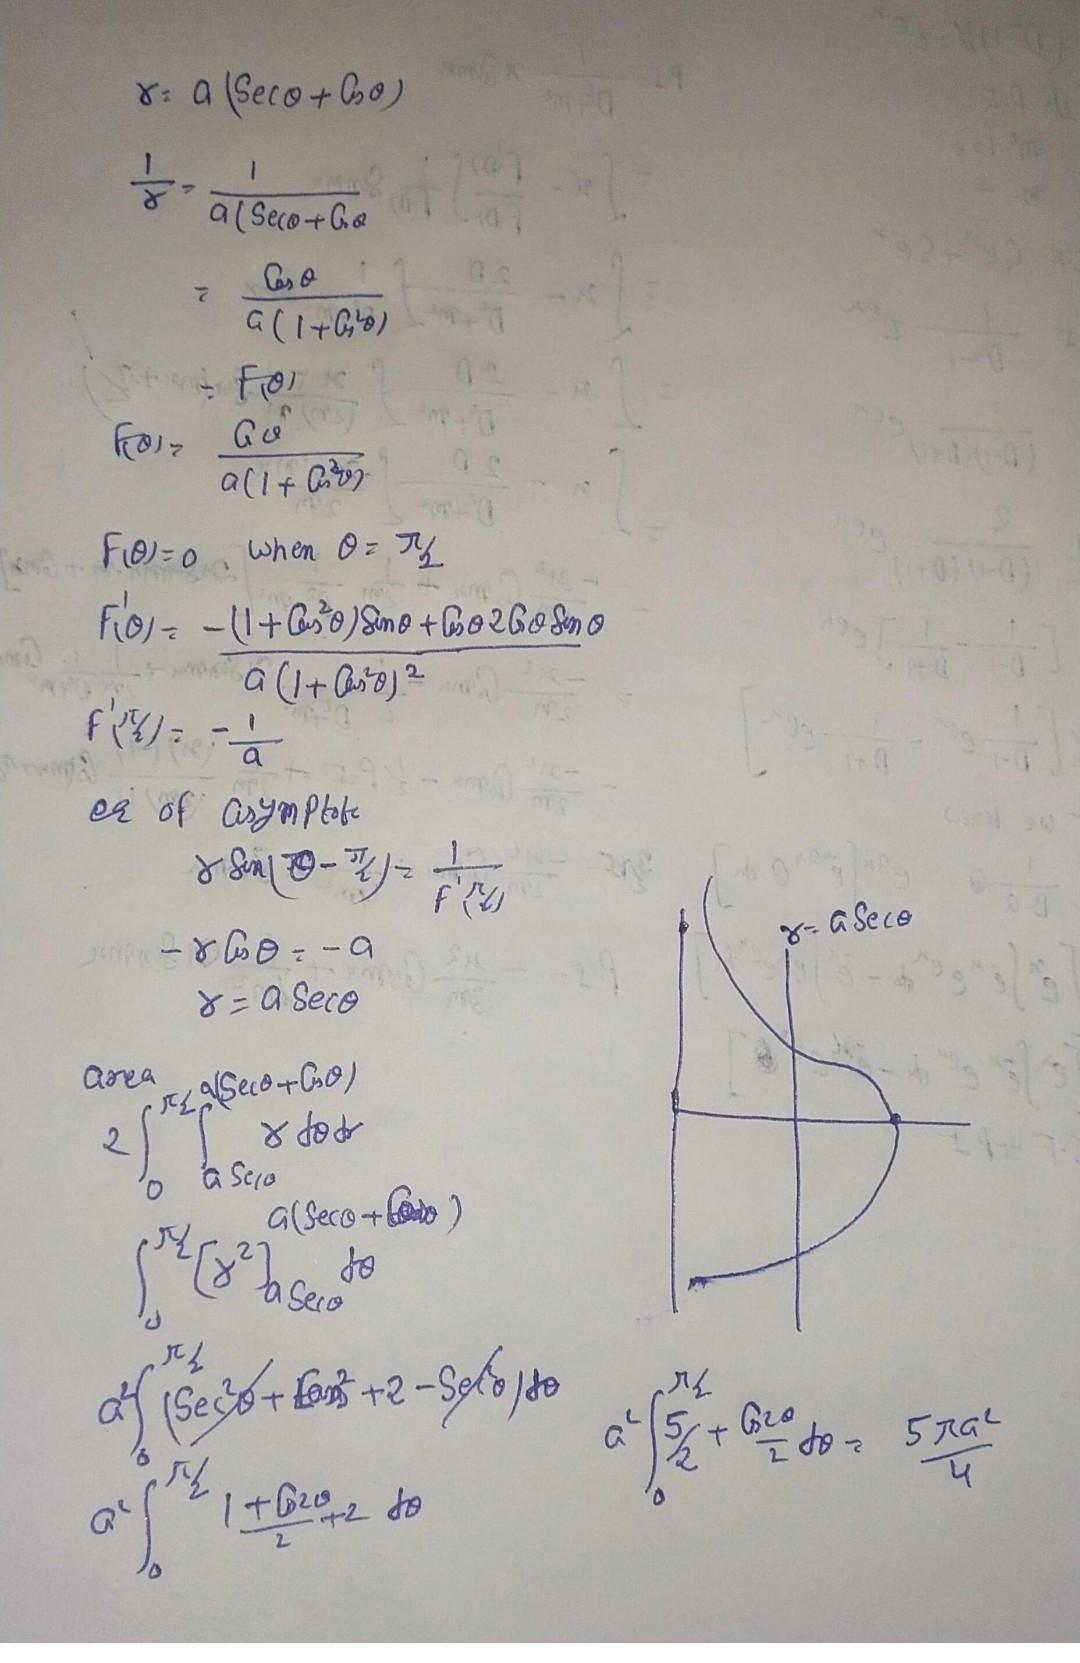 r = a (Secθ + Cosθ)
1/r = 1/a(Secθ + Cosθ
= Cosθ/a(1+Cos²θ)
= F(θ)
F(θ) = Cosθ/a(1+Cos²θ)
F(θ)=0 when θ = π/2
F'(θ) = -(1+Cos²θ)Sinθ + Cosθ 2CosθSinθ/a(1+Cos²θ)²
F'(π/2) = -1/a
eq of asymptote
r Sin(θ - π/2) = 1/F'(π/2)
-r Cosθ = -a
r = a Secθ
r = a Secθ
area
2∫₀^π/2 ∫_aSecθ^a(Secθ+Cosθ) r dθdr
∫₀^π/2 [r²]_aSecθ^a(Secθ+Cosθ) dθ
a²∫₀^π/2 (Sec²θ + Cos² + 2 - Sec²θ) dθ
a²∫₀^π/2 1+Cos2θ/2 +2 dθ
a²∫₀^π/2 5/2 + Cos2θ/2 dθ = 5πa²/4